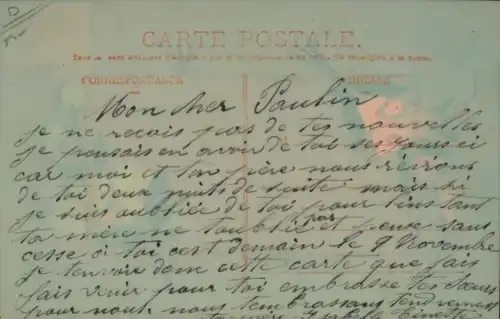 D
CARTE POSTALE.
CORRESPONDANCE ADRESSE
Mon cher Paulin
je ne reçois pas de tes nouvelles
je pensais en avoir de toi ses jours ci
car moi et ton père nous rêvions
de toi deux nuits de suite mais si
je suis oubliée de toi pour l'instant
ta mère ne t'oublie pas et pense sans
cesse à toi cest demain le 9 Novembre
je t'envoie donc cette carte que fais
fais venir pour toi embrasse tes sœurs
pour nous. nous t'embrassons tendrement